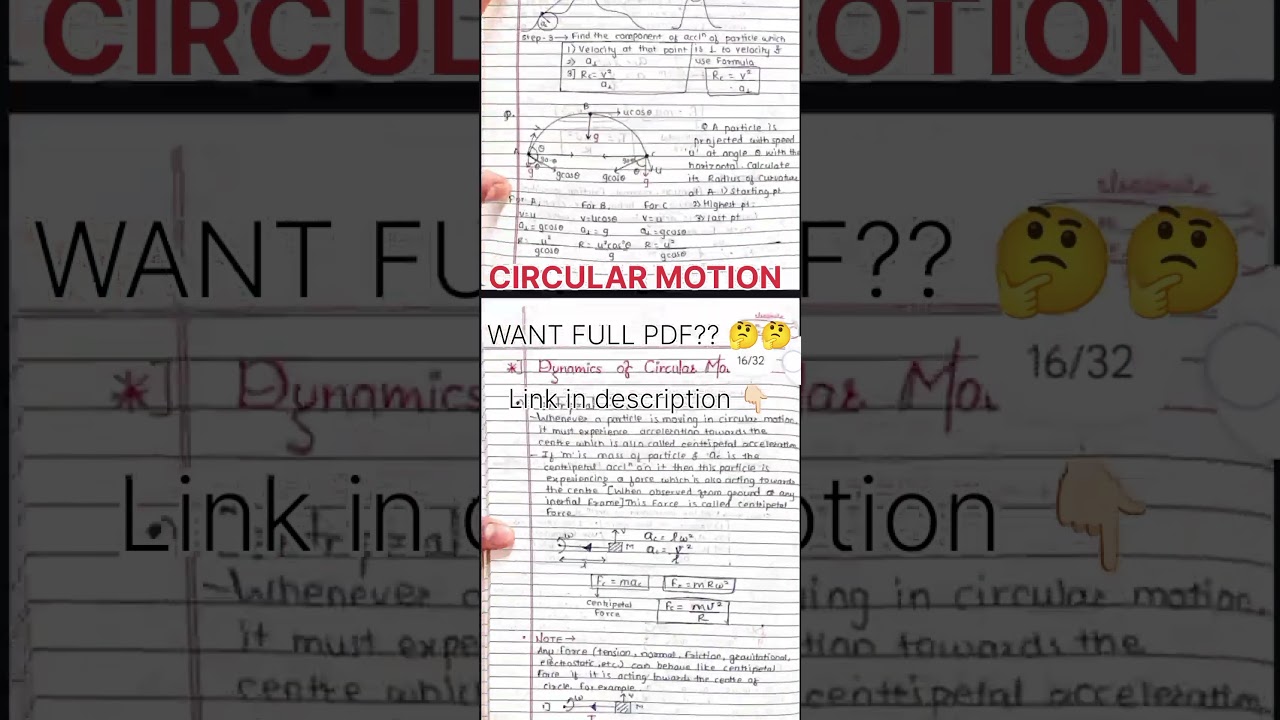 CIRCULAR MOTION
Step-3 → Find the component of accln of particle which
1) Velocity at that point is ⊥ to velocity &
2) a⊥ use Formula
3] Rc = v²/a⊥ Rc = v²/a⊥
P.
B
ucosθ
g
A
θ
90-θ
g
gcosθ
gcosθ
C
θ
u
g
Q A particle is
projected with speed
'u' at angle θ with the
horizontal. Calculate
its Radius of Curvature
at A. 1) Starting pt.
2) Highest pt.
3) last pt.
For A, For B, For C
v=u v=ucosθ v=u
a⊥=gcosθ a⊥=g a⊥=gcosθ
R= u²/gcosθ R= u²cos²θ/g R= u²/gcosθ
CIRCULAR MOTION
classmate
WANT FULL PDF?? 🤔🤔
16/32
*] Dynamics of Circular Mo
Link in description 👇🏻
- Whenever a particle is moving in circular motion,
it must experience acceleration towards the
centre which is also called centripetal acceleration
- If 'm' is mass of particle & ac is the
centripetal accln on it then this particle is
experiencing a force which is also acting towards
the centre [When observed from ground or any
inertial frame] This Force is called centripetal
Force.
ω v M ac = lω²
l ac = v²/l
Fc = mac Fc = mRω²
centripetal
Force
Fc = mv²/R
• NOTE →
Any Force (tension, normal, friction, gravitational,
electrostatic, etc) can behave like centripetal
Force if it is acting towards the centre of
circle. For example.
1.] ω v M
T